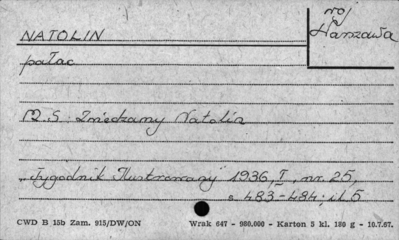 NATOLIN
woj
Warszawa
pałac
M.S. Zniedzany Natolin
"Tygodnik Ilustrowany" 1936, I, nr. 25,
s. 483-484; il. 5
CWD B 15b Zam. 915/DW/ON Wrak 647 - 980.000 - Karton 5 kl. 186 g - 10.7.67.